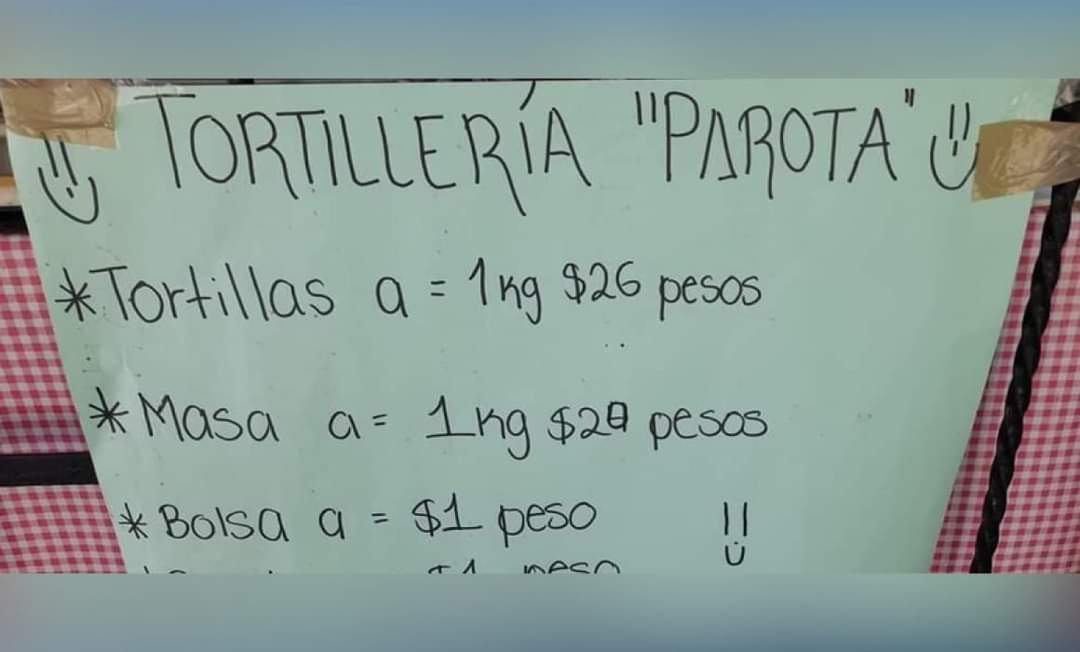 TORTILLERÍA "PAROTA"
*Tortillas a = 1kg $26 pesos
*Masa a = 1kg pesos
*Bolsa a = $1 peso
$1 peso